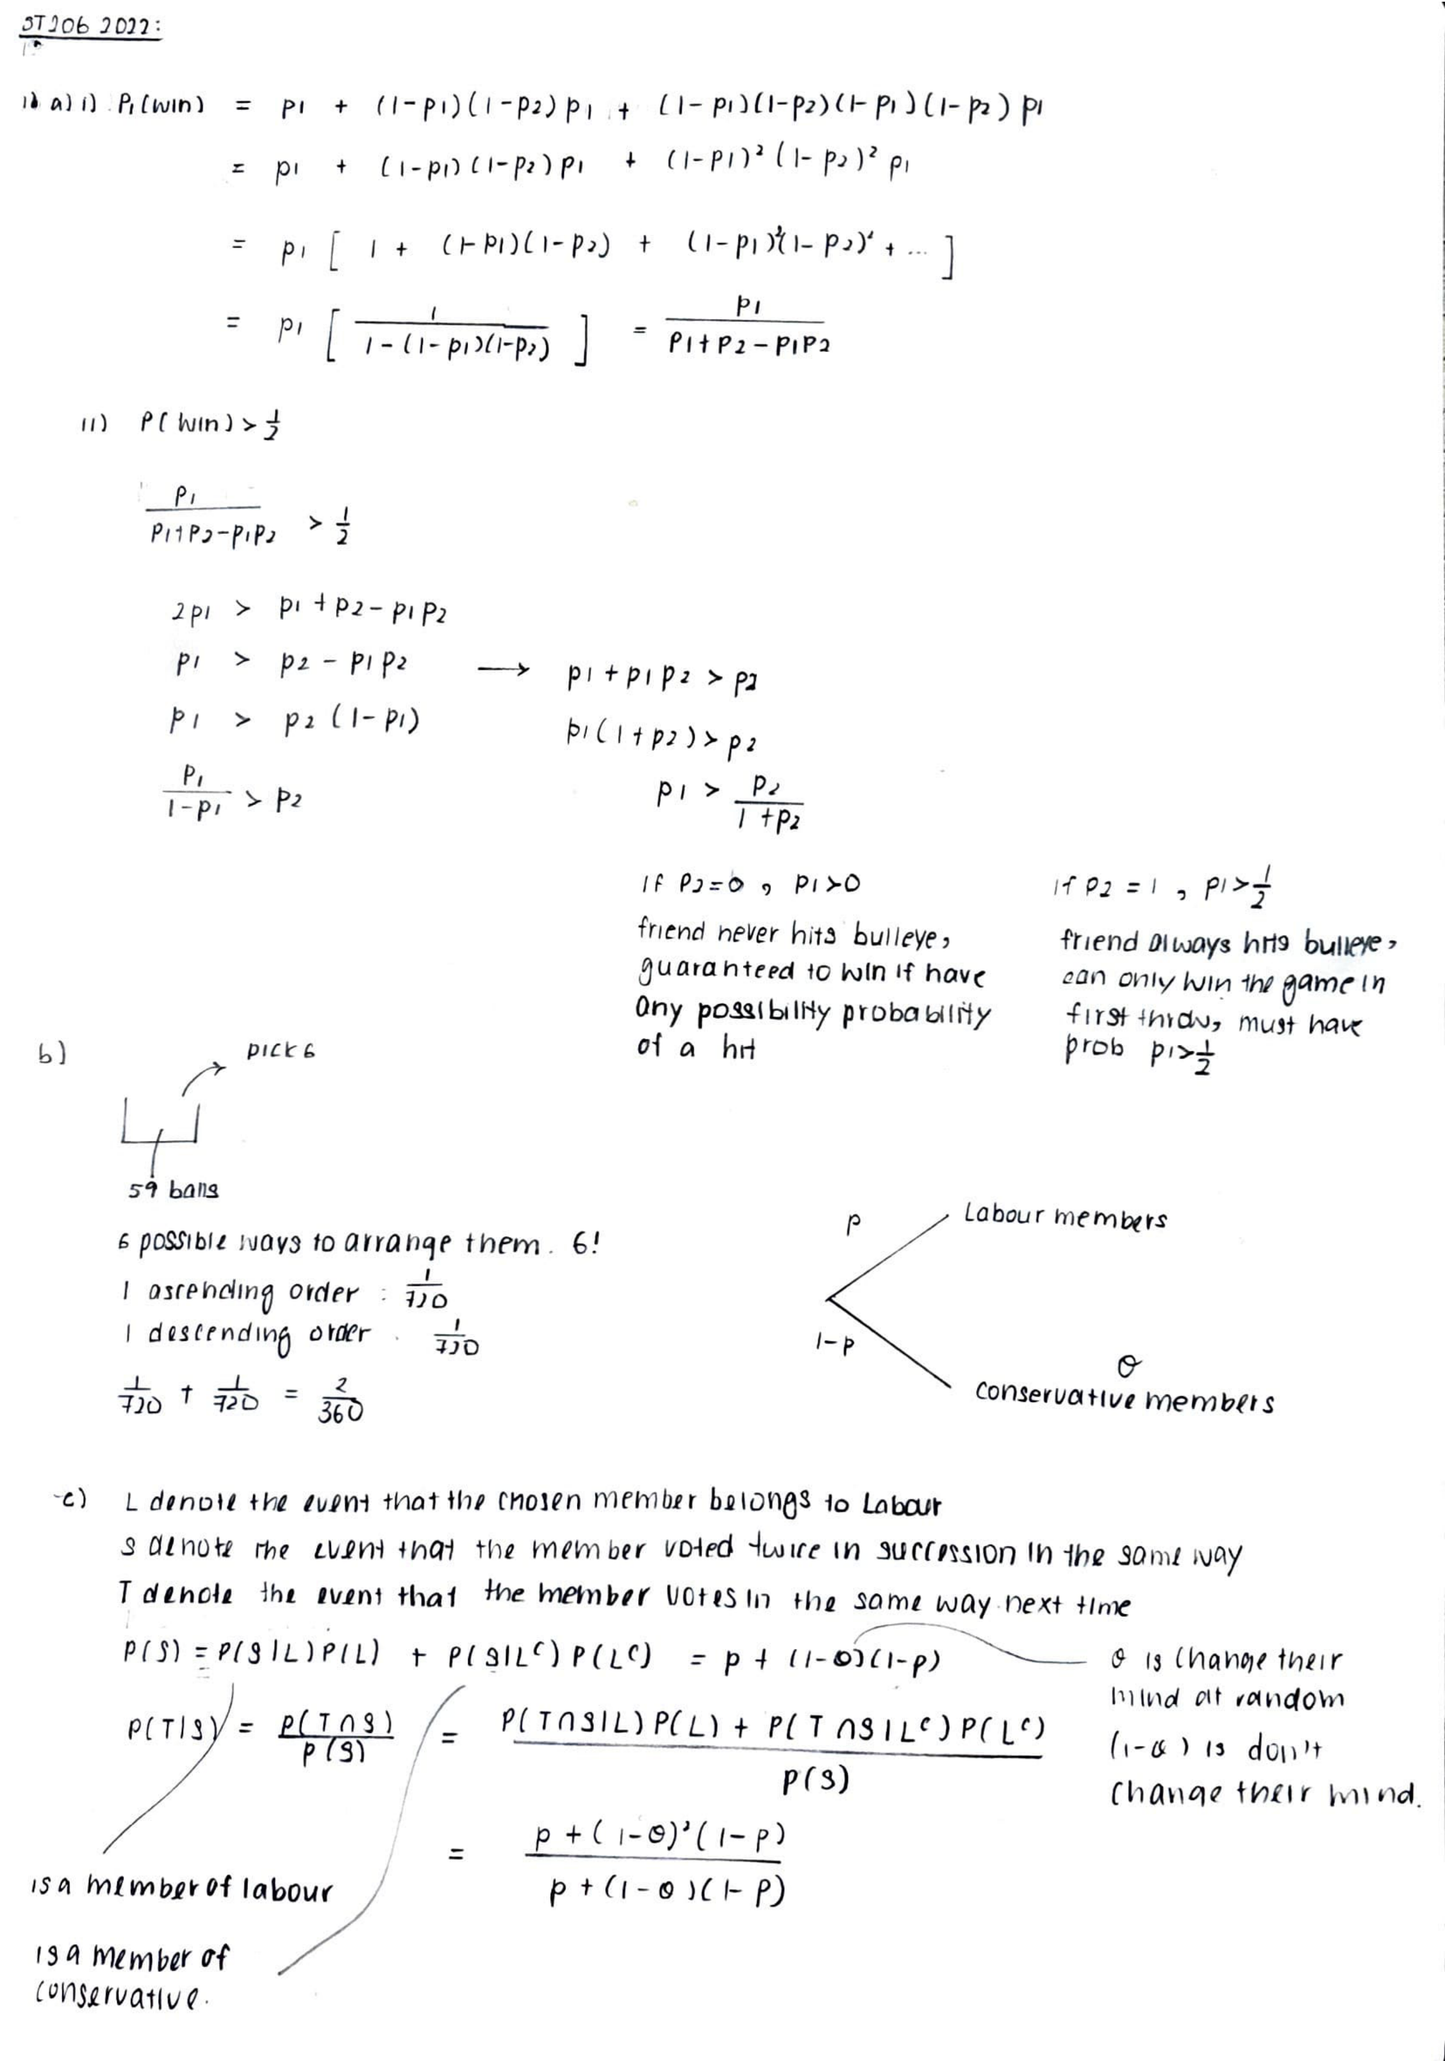 ST206 2022:
1) a) i) P₁(win) = p₁ + (1-p₁)(1-p₂)p₁ + (1-p₁)(1-p₂)(1-p₁)(1-p₂)p₁
= p₁ + (1-p₁)(1-p₂)p₁ + (1-p₁)²(1-p₂)²p₁
= p₁ [ 1 + (1-p₁)(1-p₂) + (1-p₁)²(1-p₂)² + ... ]
= p₁ [ 1 / (1-(1-p₁)(1-p₂)) ] = p₁ / (p₁+p₂-p₁p₂)
ii) P(win) > 1/2
p₁ / (p₁+p₂-p₁p₂) > 1/2
2p₁ > p₁+p₂-p₁p₂
p₁ > p₂-p₁p₂ → p₁+p₁p₂ > p₂
p₁ > p₂(1-p₁)
p₁(1+p₂) > p₂
p₁/(1-p₁) > p₂
p₁ > p₂/(1+p₂)
if p₂=0, p₁>0
friend never hits bulleye,
guaranteed to win if have
any possibility probability
of a hit
if p₂ = 1, p₁>1/2
friend always hits bulleye,
can only win the game in
first throw, must have
prob p₁>1/2
b) pick 6
59 balls
6 possible ways to arrange them. 6!
1 ascending order : 1/720
1 descending order . 1/720
1/720 + 1/720 = 2/360
p Labour members
1-p θ
conservative members
c) L denote the event that the chosen member belongs to Labour
S denote the event that the member voted twice in succession in the same way
T denote the event that the member votes in the same way next time
P(S) = P(S|L)P(L) + P(S|Lᶜ)P(Lᶜ) = p + (1-θ)(1-p)
P(T|S) = P(T∩S)/P(S) = (P(T∩S|L)P(L) + P(T∩S|Lᶜ)P(Lᶜ)) / P(S)
= (p+(1-θ)²(1-p)) / (p+(1-θ)(1-p))
θ is change their
mind at random
(1-θ) is don't
change their mind.
is a member of labour
is a member of
conservative.